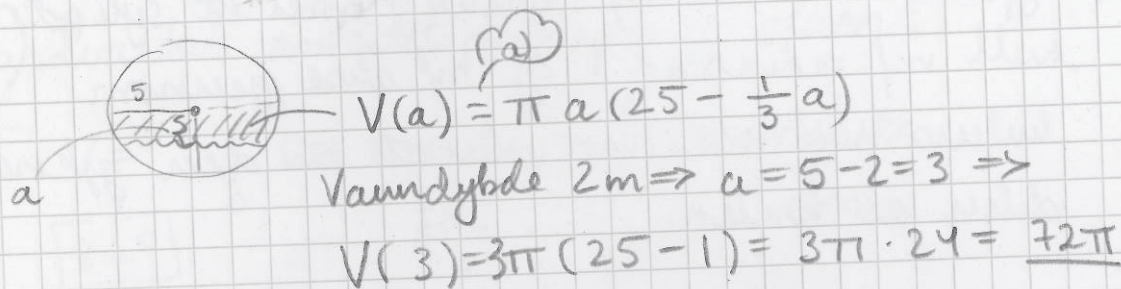 (a)
5
V(a) = π a (25 - 1/3 a)
5
a
Vanndybde 2m => a = 5-2 = 3 =>
V(3) = 3π (25-1) = 3π · 24 = 72π